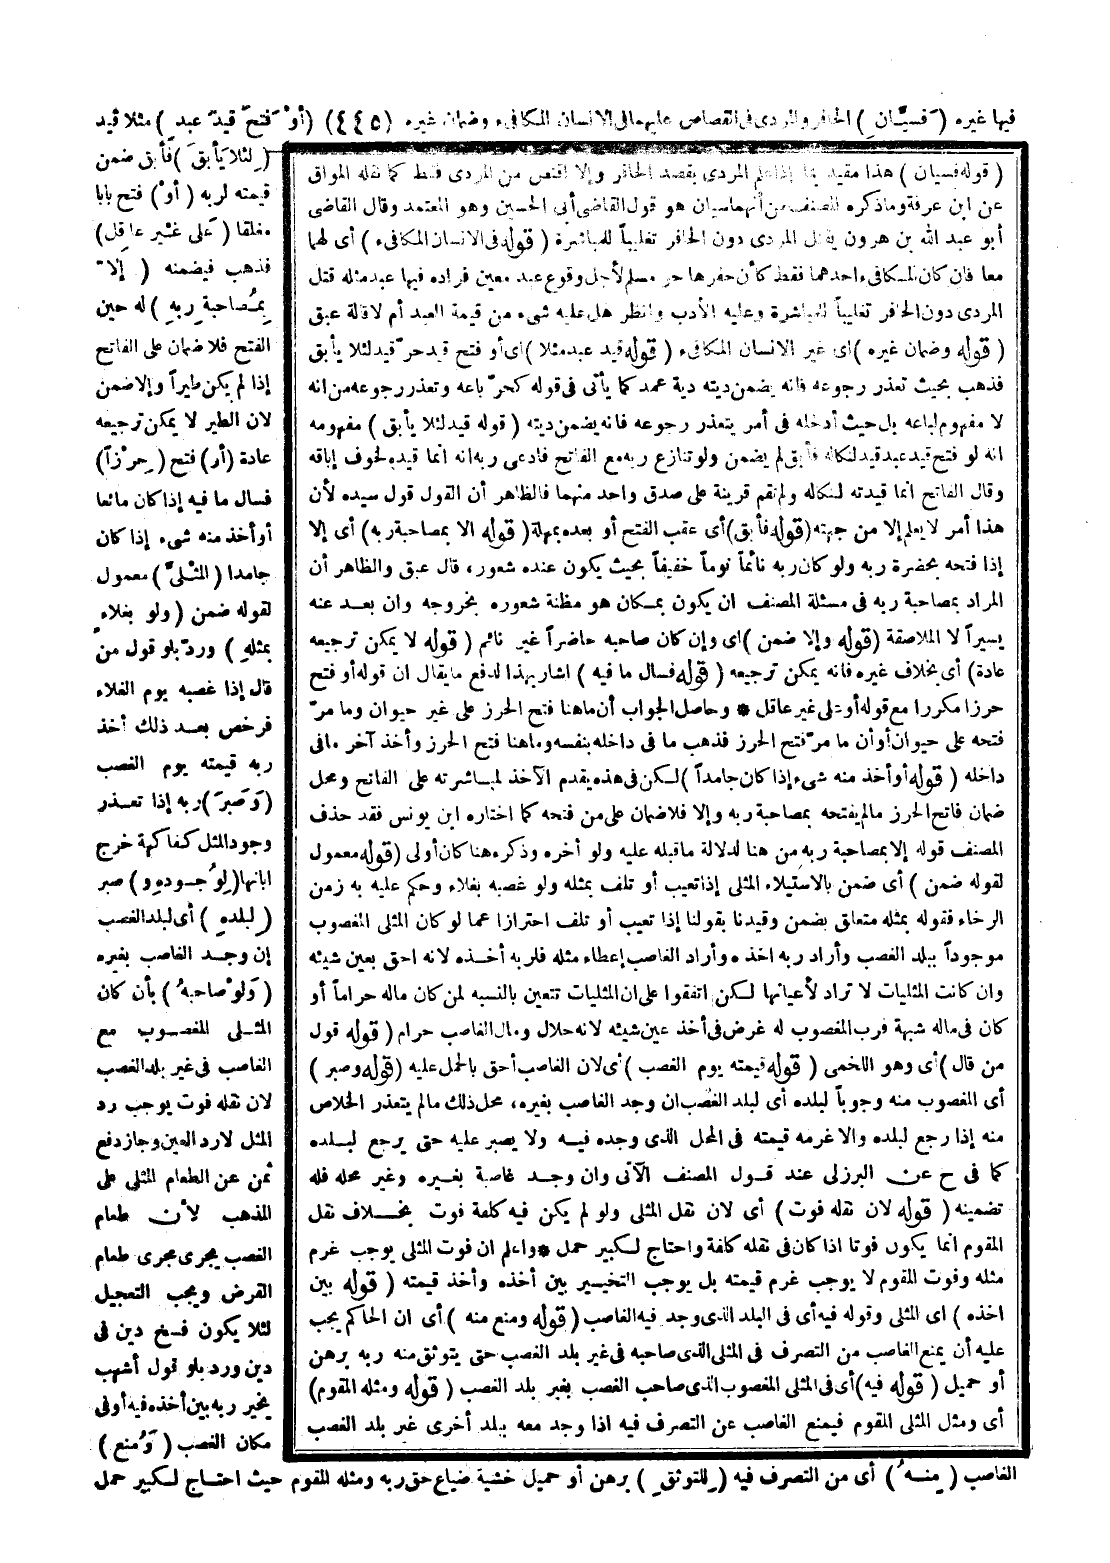 فيها غيره (فسيّان) الحافر والمردى فى القصاص عليهما فى الانسان المكافىء وضمان غيره (٤٤٥) (أوْ فتحَ قيدَ عبدٍ) مثلا قيد
(لِئلا يأبق) فأبق ضمن
قيمته لربه (أوْ) فتح بابا
مغلقا (على غيْر عاقِل)
فذهب فيضمنه (إلا
بِمُصاحبةِ ربِهِ) له حين
الفتح فلا ضمان على الفاتح
إذا لم يكن طيراً وإلا ضمن
لان الطير لا يمكن ترجيعه
عادة (أو) فتح (حِرْزاً)
فسال ما فيه إذا كان مائعا
أو أخذ منه شىء إذا كان
جامدا (المثلىّ) معمول
لقوله ضمن (ولو بغلاءٍ
بمثلهِ) وردّ بلو قول من
قال إذا غصبه يوم الغلاء
فرخص بعد ذلك أخذ
ربه قيمته يوم الغصب
(وَصَبرَ) ربه إذا تعذر
وجود المثل كفاكهة خرج
ابانها (لِوُجودهِ و) صبر
(لبلدهِ) أى لبلد الغصب
إن وجد الغاصب بغيره
(وَلوْ صاحبهُ) بأن كان
المثلى المغصوب مع
الغاصب فى غير بلد الغصب
لان نقله فوت يوجب رد
المثل لا رد العين وجاز دفع
ثمن عن الطعام المثلى على
المذهب لأن طعام
الغصب يجرى مجرى طعام
القرض ويجب التعجيل
لئلا يكون فسخ دين فى
دين ورد بلو قول أشهب
يخير ربه بين أخذه فيه أو فى
مكان الغصب (وَمُنع)
(قوله فسيان) هذا مقيد بما إذا علم المردى بقصد الحافر وإلا اقتص من المردى فقط كما نقله المواق
عن ابن عرفة وما ذكره المصنف من أنهما سيان هو قول القاضى أبى الحسين وهو المعتمد وقال القاضى
أبو عبد الله بن هرون يقتل المردى دون الحافر تغليباً للمباشرة (قوله فى الانسان المكافىء) أى لهما
معا فان كان المكافىء احدهما فقط كأن حفرها حر مسلم لأجل وقوع عبد معين فرداه فيها عبد مثله قتل
المردى دون الحافر تغليباً للمباشرة وعليه الأدب وانظر هل عليه شىء من قيمة العبد أم لا قاله عبق
(قوله وضمان غيره) اى غير الانسان المكافىء (قوله قيد عبد مثلا) اى أو فتح قيد حرّ قيد لئلا يأبق
فذهب بحيث تعذر رجوعه فانه يضمن ديته دية عمد كما يأتى فى قوله كحرّ باعه وتعذر رجوعه من انه
لا مفهوم لباعه بل حيث أدخله فى أمر يتعذر رجوعه فانه يضمن ديته (قوله قيد لئلا يأبق) مفهومه
انه لو فتح قيد عبد قيد لنكاله فأبق لم يضمن ولو تنازع ربه مع الفاتح فادعى ربه انه انما قيده لخوف إباقه
وقال الفاتح انما قيدته لنكاله ولم تقم قرينة على صدق واحد منهما فالظاهر أن القول قول سيده لأن
هذا أمر لا يعلم إلا من جهته (قوله فأبق) أى عقب الفتح أو بعده بمهلة (قوله الا بمصاحبة ربه) أى إلا
إذا فتحه بحضرة ربه ولو كان ربه نائماً نوماً خفيفاً بحيث يكون عنده شعور، قال عبق والظاهر أن
المراد بمصاحبة ربه فى مسئلة المصنف ان يكون بمكان هو مظنة شعوره بخروجه وان بعد عنه
يسيراً لا الملاصقة (قوله وإلا ضمن) اى وإن كان صاحبه حاضراً غير نائم (قوله لا يمكن ترجيعه
عادة) أى بخلاف غيره فانه يمكن ترجيعه (قوله فسال ما فيه) اشار بهذا لدفع ما يقال ان قوله أو فتح
حرزا مكررا مع قوله أو على غير عاقل * وحاصل الجواب أن ما هنا فتح الحرز على غير حيوان وما مرّ
فتحه على حيوان أو أن ما مرّ فتح الحرز فذهب ما فى داخله بنفسه وما هنا فتح الحرز وأخذ آخر ما فى
داخله (قوله أو أخذ منه شىء إذا كان جامداً) لكن فى هذه يقدم الآخذ لمباشرته على الفاتح ومحل
ضمان فاتح الحرز مالم يفتحه بمصاحبة ربه وإلا فلا ضمان على من فتحه كما اختاره ابن يونس فقد حذف
المصنف قوله إلا بمصاحبة ربه من هنا لدلالة ما قبله عليه ولو أخره وذكره هنا كان أولى (قوله معمول
لقوله ضمن) أى ضمن بالاستيلاء المثلى إذا تعيب أو تلف بمثله ولو غصبه بغلاء وحكم عليه به زمن
الرخاء فقوله بمثله متعلق بضمن وقيدنا بقولنا إذا تعيب أو تلف احترازا عما لو كان المثلى المغصوب
موجوداً ببلد الغصب وأراد ربه اخذه وأراد الغاصب إعطاء مثله فلربه أخذه لانه احق بعين شيئه
وان كانت المثليات لا تراد لأعيانها لكن اتفقوا على ان المثليات تتعين بالنسبة لمن كان ماله حراماً أو
كان فى ماله شبهة فرب المغصوب له غرض فى أخذ عين شيئه لانه حلال ومال الغاصب حرام (قوله قول
من قال) أى وهو اللخمى (قوله قيمته يوم الغصب) أى لان الغاصب أحق بالحمل عليه (قوله وصبر)
أى المغصوب منه وجوباً لبلده أى لبلد الغصب ان وجد الغاصب بغيره، محل ذلك مالم يتعذر الخلاص
منه إذا رجع لبلده والا غرمه قيمته فى المحل الذى وجده فيه ولا يصبر عليه حتى يرجع لبلده
كما فى ح عن البرزلى عند قول المصنف الآتى وان وجد غاصبه بغيره وغير محله فله
تضمينه (قوله لان نقله فوت) أى لان نقل المثلى ولو لم يكن فيه كلفة فوت بخلاف نقل
المقوم انما يكون فوتا اذا كان فى نقله كلفة واحتاج لكبير حمل * واعلم ان فوت المثلى يوجب غرم
مثله وفوت المقوم لا يوجب غرم قيمته بل يوجب التخيير بين أخذه وأخذ قيمته (قوله بين
اخذه) اى المثلى وقوله فيه أى فى البلد الذى وجد فيه الغاصب (قوله ومنع منه) أى ان الحاكم يجب
عليه أن يمنع الغاصب من التصرف فى المثلى الذى صاحبه فى غير بلد الغصب حتى يتوثق منه ربه برهن
أو حميل (قوله فيه) أى فى المثلى المغصوب الذى صاحب الغصب بغير بلد الغصب (قوله ومثله المقوم)
أى ومثل المثلى المقوم فيمنع الغاصب عن التصرف فيه اذا وجد معه ببلد أخرى غير بلد الغصب
الغاصب (مِنهُ) أى من التصرف فيه (لِلتوثقِ) برهن أو حميل خشية ضياع حق ربه ومثله المقوم حيث احتاج لكبير حمل